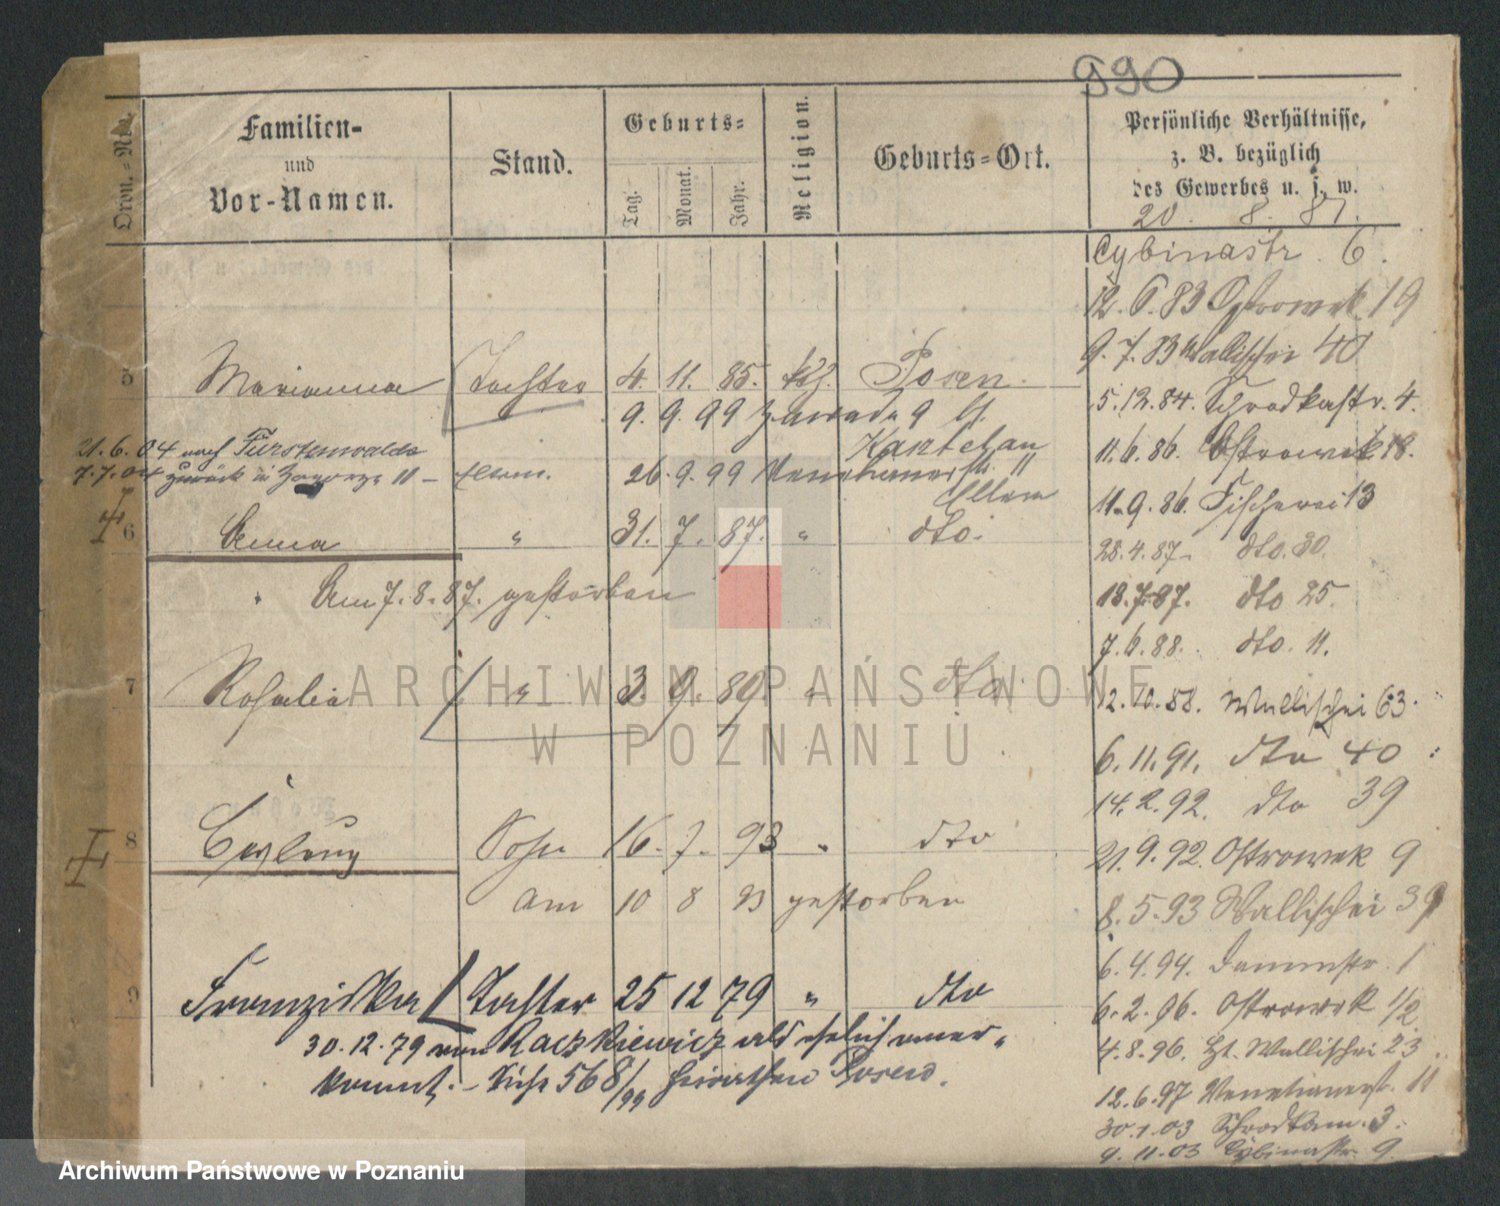 990
Ordn.-Nro.
Familien-
und
Vor-Namen.
Stand.
Geburts-
Tag.
Monat.
Jahr.
Religion.
Geburts-Ort.
Persönliche Verhältnisse,
z. B. bezüglich
des Gewerbes u. s. w.
20. 8. 81.
Cybinastr. 6.
12. 6. 83 Ostrowek 19
9. 7. 83 Wallischei 40
5 Marianna Tochter 4. 11. 85. kth. Posen.
5. 12. 84. Schrodkastr. 4.
9. 9. 99 Zawade 9
11. 6. 86. Ostrowek 18.
21. 6. 04 nach Fürstenwalde
7. 7. 04 zurück Zagorze 11 – Eltern.
26. 9. 99 Venetianerstr. 11
Eltern
11. 9. 86. Fischerei 13
6 Anna " 31. 7. 87. " dto.
28. 4. 87. dto. 30.
Am 7. 8. 87. gestorben
18. 7. 87. dto 25.
7. 6. 88. dto. 11.
7 Rosalia " 3. 9. 89. " dto
12. 10. 88. Wallischei 63.
6. 11. 91. dto 40
14. 2. 92. dto 39
8 Sohn 16. 7. 93 " dto
21. 9. 92. Ostrowek 9
am 10 8 93 gestorben
8. 5. 93 Wallischei 39
6. 4. 94. Dammstr. 1
9 Franziska Tochter 25 12 79 " dto
6. 2. 96. Ostrowek 1/2
30. 12. 79 von Raczkiewicz als ehelich aner-
4. 8. 96. Wallischei 23
kannt. – 568/99 Heirathen Posen.
12. 6. 97 Venetianerstr. 11
30. 1. 03 Schrodkam. 3.
9. 11. 03 Cybinastr. 9
ARCHIWUM PAŃSTWOWE
W POZNANIU
Archiwum Państwowe w Poznaniu